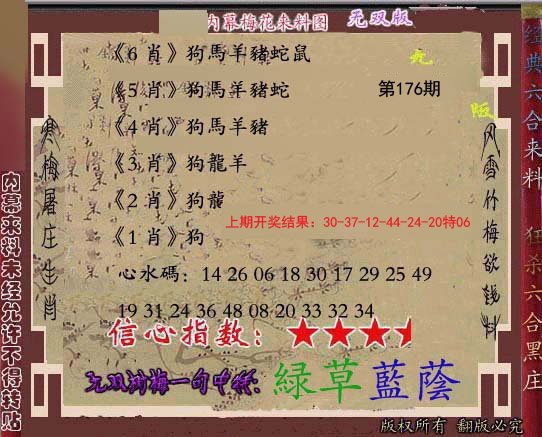 内幕梅花来料图 无双版
《6 肖》狗馬羊豬蛇鼠
《5 肖》狗馬羊豬蛇 第176期
《4 肖》狗馬羊豬
《3 肖》狗龍羊
《2 肖》狗龍
上期开奖结果：30-37-12-44-24-20特06
《1 肖》狗
心水碼：14 26 06 18 30 17 29 25 49
19 31 24 36 48 08 20 33 32 34
信心指数：
无双狗梅一句中特：綠草藍蔭
版权所有 翻版必究
寒梅屠庄生肖
风雪竹梅欲钱料
内幕来料未经允许不得转贴
经典六合来料
狂杀六合黑庄